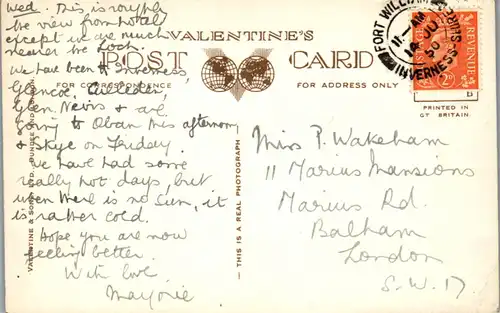 Wed. This is roughly
the view from hotel
except we are much
nearer the Loch.
We have been to Inverness,
Glencoe, Culloden,
Glen Nevis & are
going to Oban this afternoon
& Skye on Friday.
We have had some
really hot days, but
when there is no sun, it
is rather cold.
Hope you are now
feeling better.
With love
Marjorie
VALENTINE'S
POST CARD
FOR CORRESPONDENCE
FOR ADDRESS ONLY
VALENTINE & SONS LTD. DUNDEE AND
THIS IS A REAL PHOTOGRAPH
FORT WILLIAM
11 - AM
14 JU
50
INVERNESS-SHIRE
REVENUE
PRINTED IN
GT BRITAIN.
Miss P. Wakeham
11 Marius Mansions
Marius Rd.
Balham
London
S.W.17